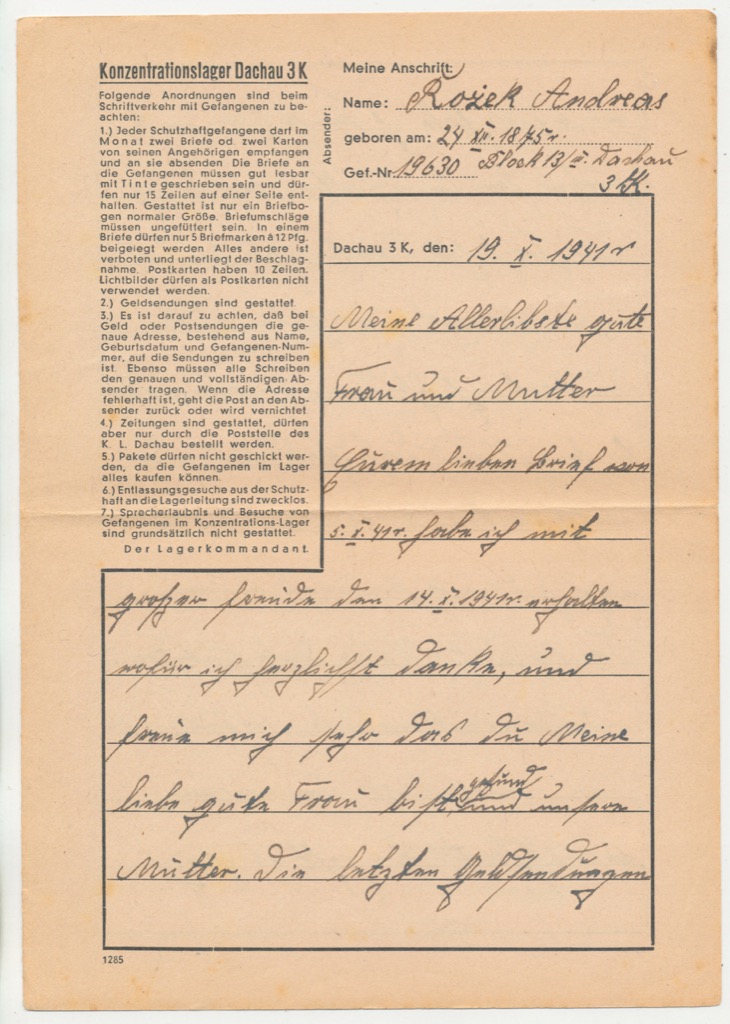 Konzentrationslager Dachau 3 K
Folgende Anordnungen sind beim
Schriftverkehr mit Gefangenen zu be-
achten:
1.) Jeder Schutzhaftgefangene darf im
Monat zwei Briefe od. zwei Karten
von seinen Angehörigen empfangen
und an sie absenden. Die Briefe an
die Gefangenen müssen gut lesbar
mit Tinte geschrieben sein und dür-
fen nur 15 Zeilen auf einer Seite ent-
halten. Gestattet ist nur ein Briefbo-
gen normaler Größe. Briefumschläge
müssen ungefüttert sein. In einem
Briefe dürfen nur 5 Briefmarken à 12 Pfg.
beigelegt werden. Alles andere ist
verboten und unterliegt der Beschlag-
nahme. Postkarten haben 10 Zeilen.
Lichtbilder dürfen als Postkarten nicht
verwendet werden.
2.) Geldsendungen sind gestattet.
3.) Es ist darauf zu achten, daß bei
Geld oder Postsendungen die ge-
naue Adresse, bestehend aus Name,
Geburtsdatum und Gefangenen-Num-
mer, auf die Sendungen zu schreiben
ist. Ebenso müssen alle Schreiben
den genauen und vollständigen Ab-
sender tragen. Wenn die Adresse
fehlerhaft ist, geht die Post an den Ab-
sender zurück oder wird vernichtet.
4.) Zeitungen sind gestattet, dürfen
aber nur durch die Poststelle des
K. L. Dachau bestellt werden.
5.) Pakete dürfen nicht geschickt wer-
den, da die Gefangenen im Lager
alles kaufen können.
6.) Entlassungsgesuche aus der Schutz-
haft an die Lagerleitung sind zwecklos.
7.) Sprecherlaubnis und Besuche von
Gefangenen im Konzentrations-Lager
sind grundsätzlich nicht gestattet.
Der Lagerkommandant
Absender:
Meine Anschrift:
Name: Rożek Andreas
geboren am: 24 XI. 1875r.
Gef.-Nr. 19630 Block 13/III. Dachau
3 K.
Dachau 3 K, den: 19. X. 1941r
Meine Allerlibste gute
Frau und Mutter
Eurem lieben Brief von
5. X. 41r. habe ich mit
großer freude den 14. X. 1941r. erhalten
wofür ich herzlichst danke, und
freue mich sehr das du Meine
liebe gute Frau bist gesund und unsere
Mutter. Die letzten Geldsendungen
1285